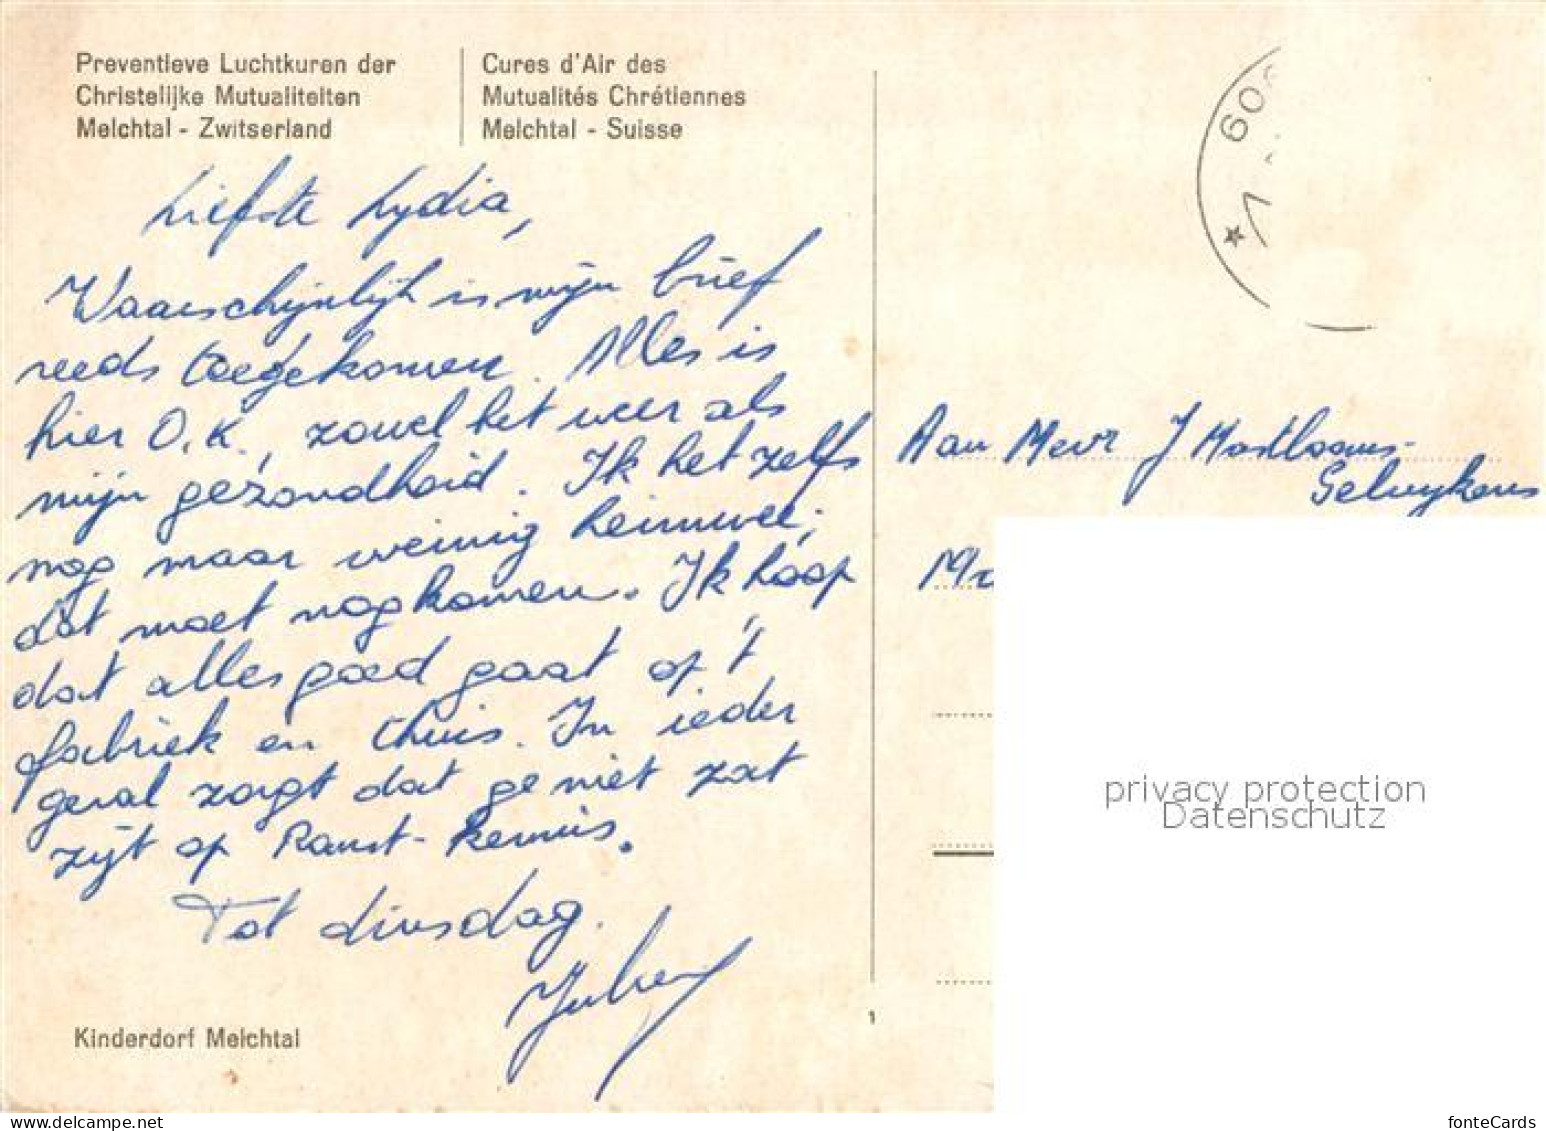 Preventieve Luchtkuren der
Christelijke Mutualiteiten
Melchtal - Zwitserland
Cures d'Air des
Mutualités Chrétiennes
Melchtal - Suisse
609
Liefste Lydia,
Waarschijnlijk is mijn brief
reeds toegekomen. Alles is
hier O.K., zowel het weer als
mijn gezondheid. Ik heb zelfs
nog maar weinig heimwee;
dat moet nog komen. Ik hoop
dat alles goed gaat op 't
fabriek en thuis. In ieder
geval zorgt dat ge niet zat
zijt op Ranst-kermis.
Tot dinsdag.
Kinderdorf Melchtal
1
Aan Mevr J
privacy protection
Datenschutz
fonteCards